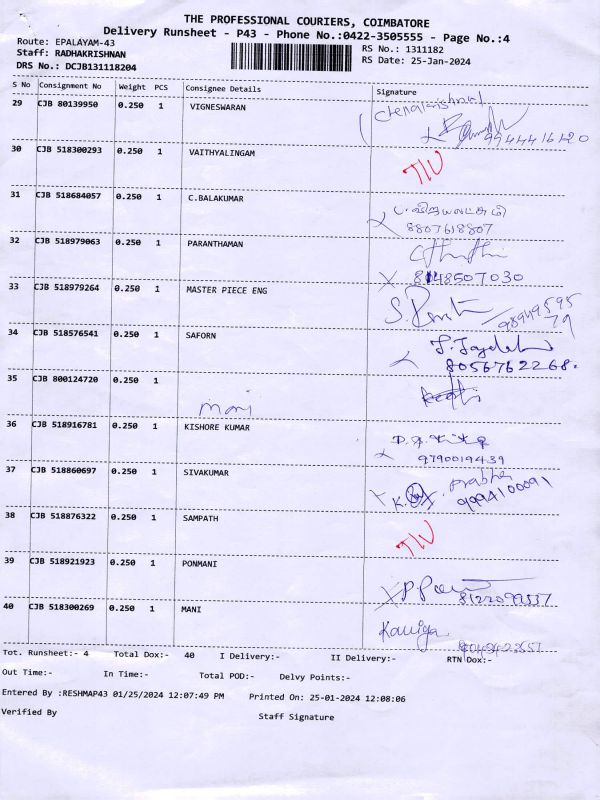 THE PROFESSIONAL COURIERS, COIMBATORE
Delivery Runsheet - P43 - Phone No.:0422-3505555 - Page No.:4
Route: EPALAYAM-43
Staff: RADHAKRISHNAN
RS No.: 1311182
DRS No.: DCJB131118204
RS Date: 25-Jan-2024
S No Consignment No Weight PCS Consignee Details Signature
29 CJB 80139950 0.250 1 VIGNESWARAN
9944416120
30 CJB 518300293 0.250 1 VAITHYALINGAM
31 CJB 518684057 0.250 1 C.BALAKUMAR
8807618807
32 CJB 518979063 0.250 1 PARANTHAMAN
8148507030
33 CJB 518979264 0.250 1 MASTER PIECE ENG
34 CJB 518576541 0.250 1 SAFORN
8056762268.
35 CJB 800124720 0.250 1
mani
36 CJB 518916781 0.250 1 KISHORE KUMAR
9790019439
37 CJB 518860697 0.250 1 SIVAKUMAR
Prabha
9994100091
38 CJB 518876322 0.250 1 SAMPATH
39 CJB 518921923 0.250 1 PONMANI
40 CJB 518300269 0.250 1 MANI
Kaviya
Tot. Runsheet:- 4 Total Dox:- 40 I Delivery:- II Delivery:- RTN Dox:-
Out Time:- In Time:- Total POD:- Delvy Points:-
Entered By :RESHMAP43 01/25/2024 12:07:49 PM Printed On: 25-01-2024 12:08:06
Verified By Staff Signature